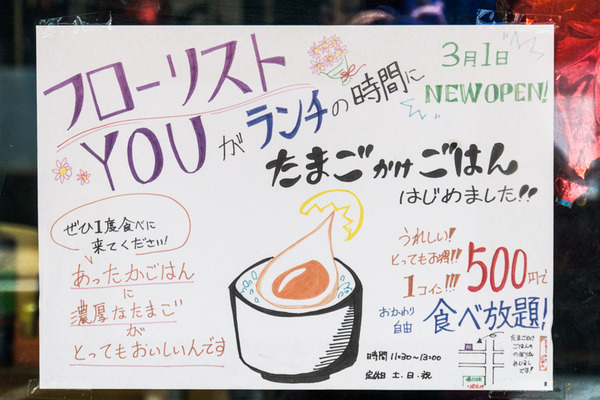 フローリスト
YOUが
ランチの時間に
3月1日
NEW OPEN!
たまごかけごはん
はじめました!!
ぜひ1度食べに
来てください!
あったかごはん
に
濃厚なたまご
が
とってもおいしいんです
うれしい!
とってもお得!!
1コイン!!!
500円で
おかわり
自由
食べ放題!
時間 11:30~13:00
定休日 土.日.祝
たまごかけ
ごはん
のぼりが
めじるし
です!